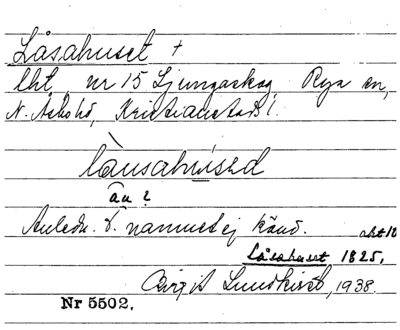 Låsahuset +
lht, nr 15 Ljungaskog Rya sn,
N. Åsbo hd, Kristianstads l.
låusahused
âu ?
Anledn. t. namnet ej känd.
Låsahuset 1825,
Birgit Lundkvist, 1938.
Nr 5502.